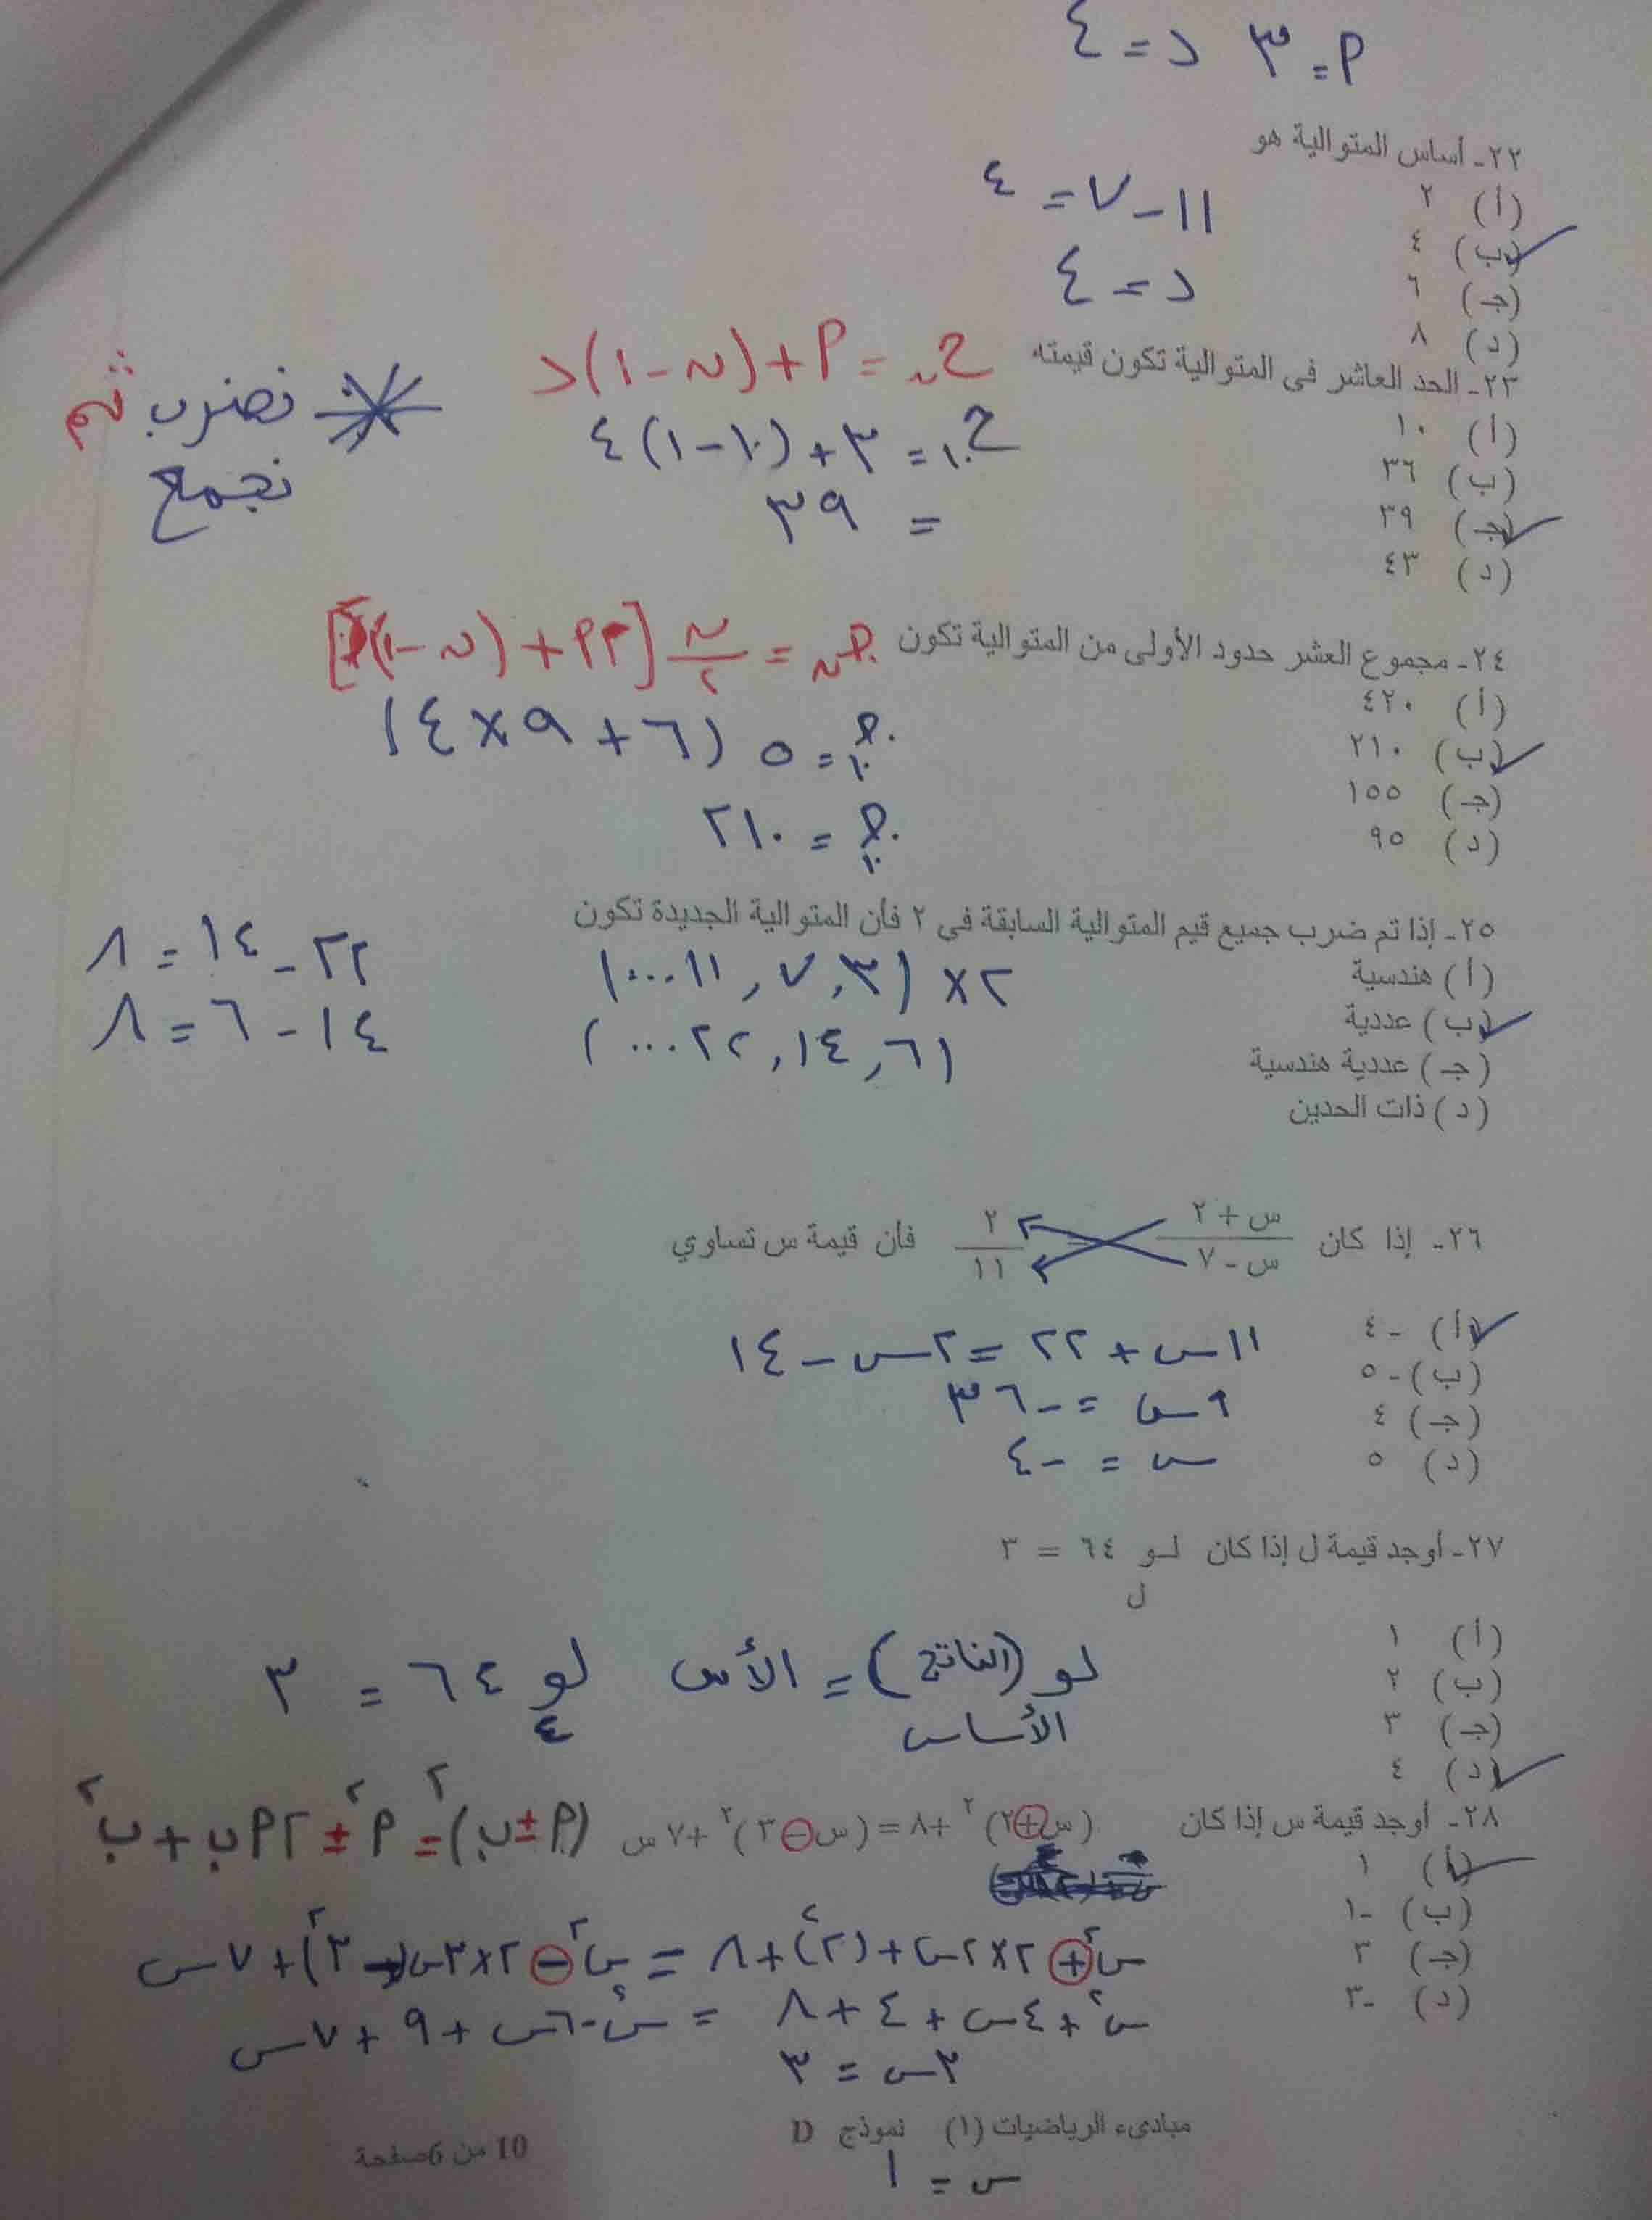 أ = ٣ د = ٤
٢٢- أساس المتوالية هو
(أ) ٢
١١ - ٧ = ٤
(ب) ٤
د = ٤
(جـ) ٦
(د) ٨
٢٣- الحد العاشر فى المتوالية تكون قيمته
ح ن = أ + (ن - ١) د
(أ) ١٠
ح ١٠ = ٣ + (١٠ - ١) ٤
(ب) ٣٦
= ٣٩
(جـ) ٣٩
(د) ٤٣
نضرب ثم
نجمع
٢٤- مجموع العشر حدود الأولى من المتوالية تكون
جـ ن = ن/٢ [٢أ + (ن - ١) د]
(أ) ٤٢٠
جـ ١٠ = ٥ (٦ + ٩ × ٤)
(ب) ٢١٠
(جـ) ١٥٥
جـ ١٠ = ٢١٠
(د) ٩٥
٢٥- إذا تم ضرب جميع قيم المتوالية السابقة فى ٢ فأن المتوالية الجديدة تكون
(أ) هندسية
٢ × (٣ , ٧ , ١١ ...)
٢٢ - ١٤ = ٨
(ب) عددية
(٦ , ١٤ , ٢٢ ...)
١٤ - ٦ = ٨
(جـ) عددية هندسية
(د) ذات الحدين
٢٦- إذا كان (س + ٢)/(س - ٧) = ٢/١١ فأن قيمة س تساوي
(أ) -٤
١١س + ٢٢ = ٢س - ١٤
(ب) -٥
٩س = -٣٦
(جـ) ٤
س = -٤
(د) ٥
٢٧- أوجد قيمة ل إذا كان لـو ٦٤ = ٣
ل
(أ) ١
لو (الناتج) = الأس لو ٦٤ = ٣
(ب) ٢
الأساس ٤
(جـ) ٣
(د) ٤
٢٨- أوجد قيمة س إذا كان (س+٢)² +٨ = (س-٣)² +٧س
(أ ± ب)² = أ² ± ٢أب + ب²
(أ) ١
(ب) -١
س² + ٢×٢س + (٢)² + ٨ = س² - ٢×٣س + (-٣)² + ٧س
(جـ) ٣
س² + ٤س + ٤ + ٨ = س² - ٦س + ٩ + ٧س
(د) -٣
٣س = ٣
مبادىء الرياضيات (١) نموذج D
10 من 6صفحة
س = ١